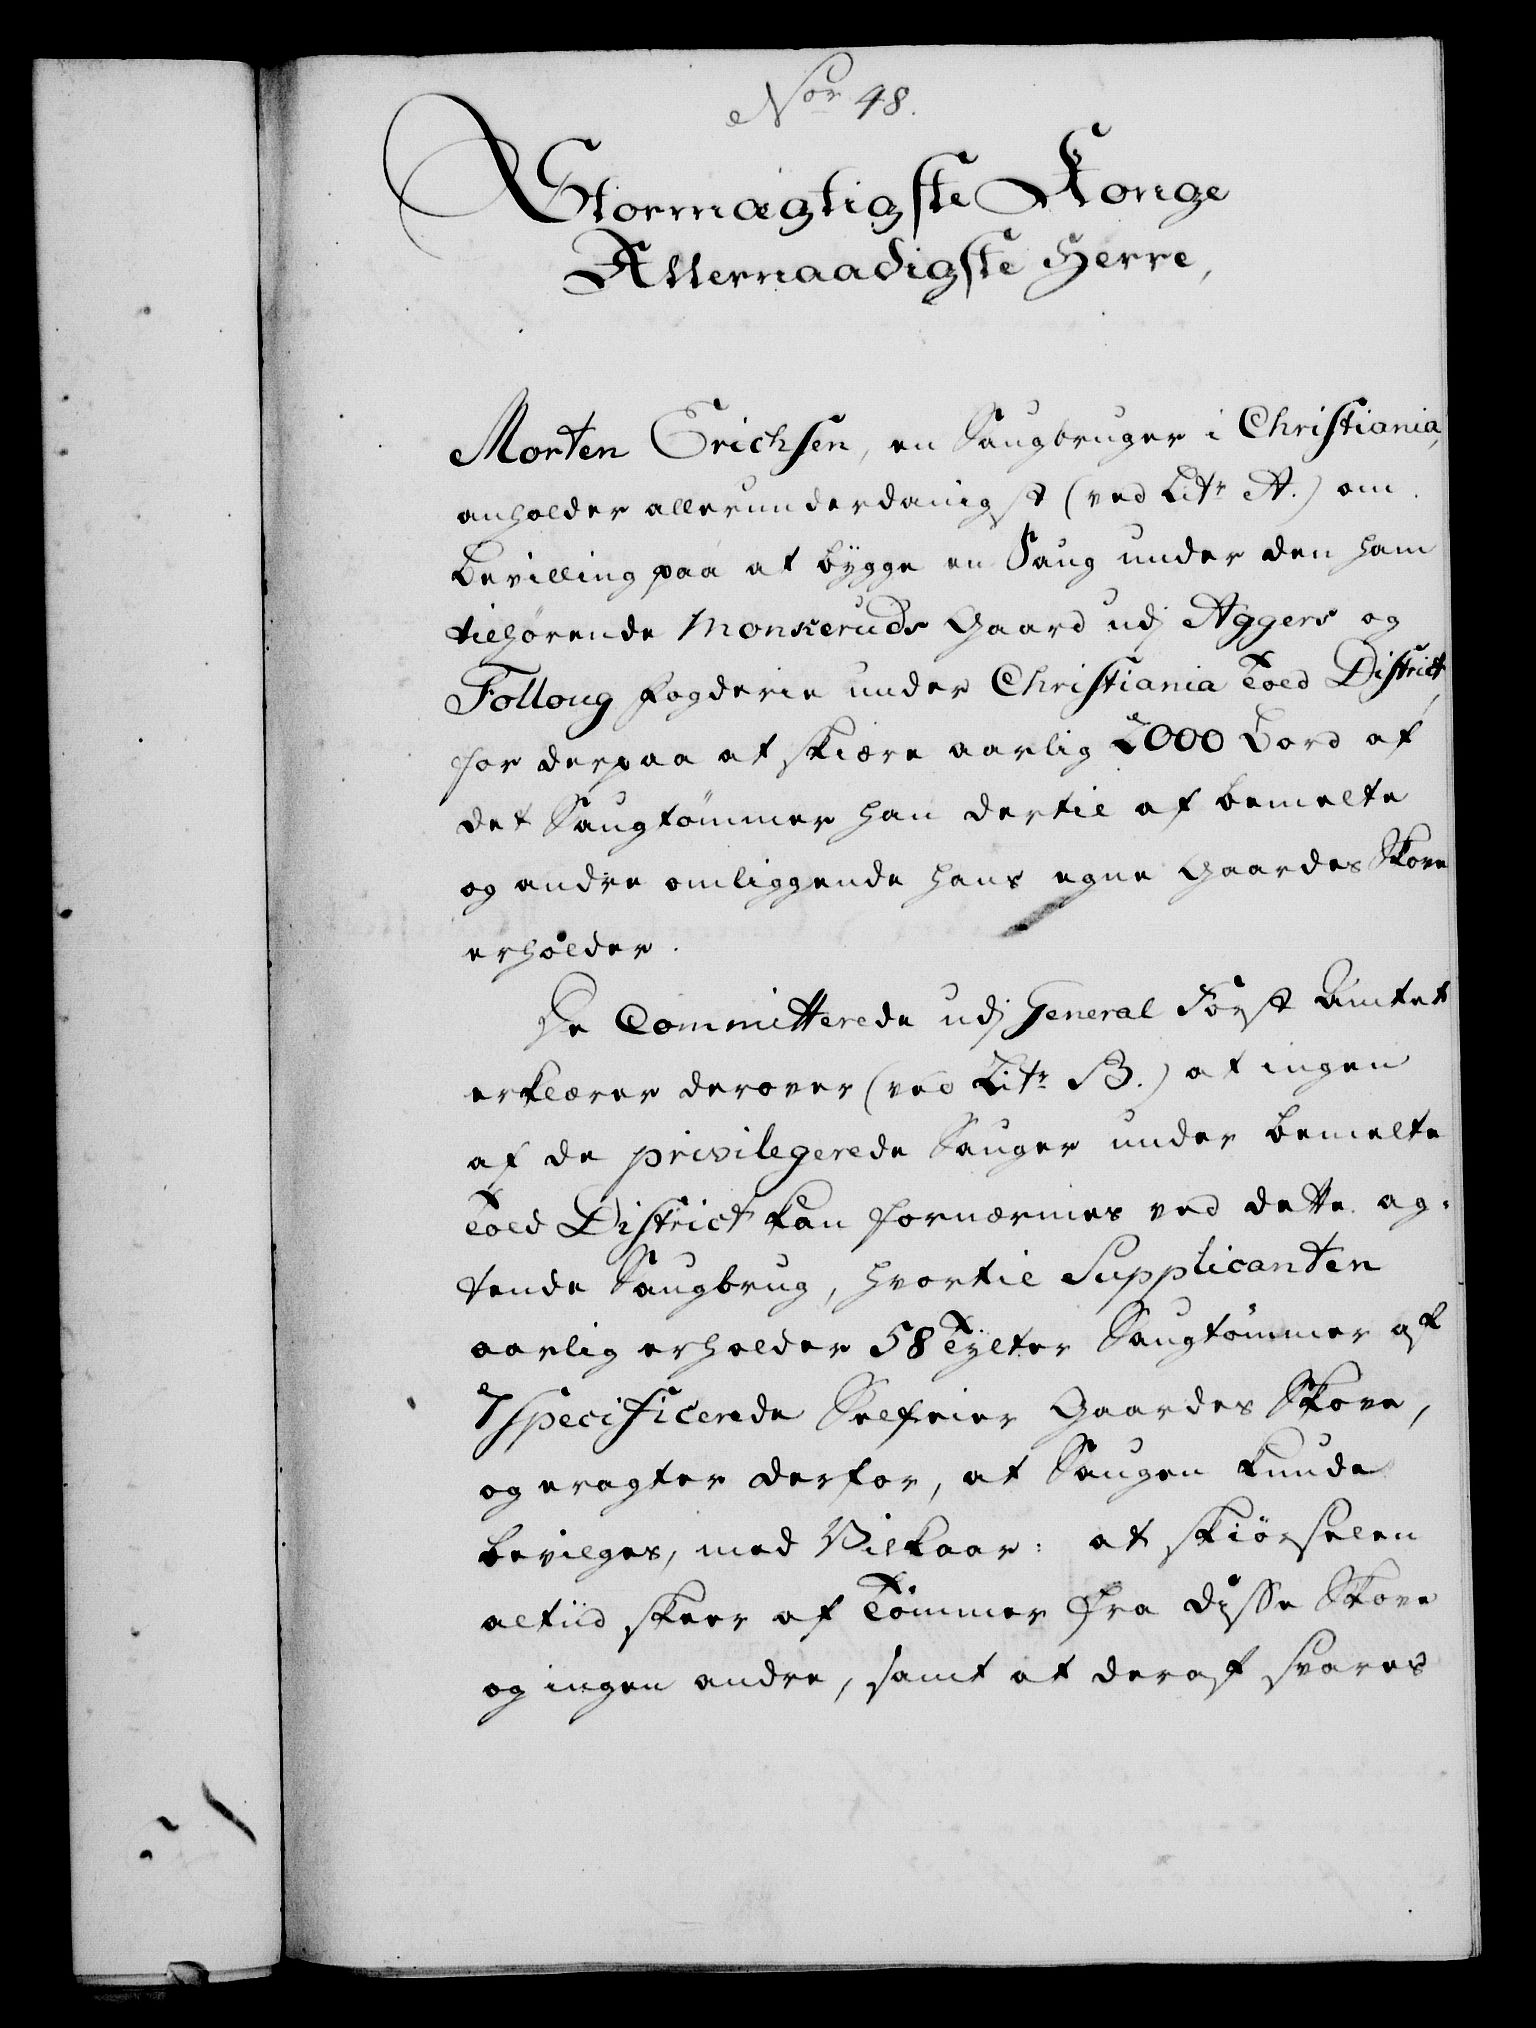 Nor 48.
Stormægtigste Konge
Allernaadigste Herre,
Morten Erichsen, en Saugbruger i Christiania,
anholder allerunderdanigst (ved Litr A.) om
Bevilling paa at bygge en Saug under den ham
tilhørende Monseruds Gaard udj Aggers og
Folloug Fogderie under Christiania Told District,
for derpaa at skiære aarlig 2000 Bord af
det Saugtømmer han dertil af bemelte
og andre omliggende hans egne Gaardes Skove
erholder.
De Committerede udj General Forst Amtet
erklærer derover (ved Litr B.) at ingen
af de privilegerede Sauger under bemelte
Told District kan fornærmes ved dette ag-
tende Saugbrug, hvortil Supplicanten
aarlig erholder 58 Tylter Saugtømmer af
7 specificerede Selfeier Gaardes Skove,
og eragter derfor, at Saugen kunde
bevilges, med Vilkaar: at skiørselen
altiid skeer af Tømmer fra disse Skove
og ingen andre, samt at deraf svares